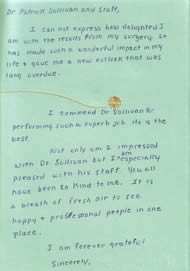 Dr Patrick Sullivan and Staff,
I can not express how delighted I
am with the results from my surgery. It
has made such a wonderful impact in my
life & gave me a new outlook that was
long overdue.
I commend Dr Sullivan for
performing such a superb job. He is the
best.
Not only am I impressed
with Dr Sullivan but I am especially
pleased with his staff. You all
have been so kind to me. It is
a breath of fresh air to see
happy & professional people in one
place.
I am forever grateful
Sincerely,